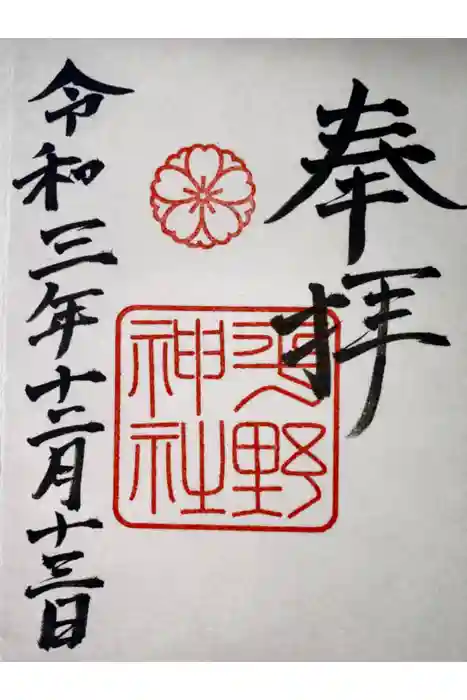 奉拝
野
神社
令和三年十二月十三日